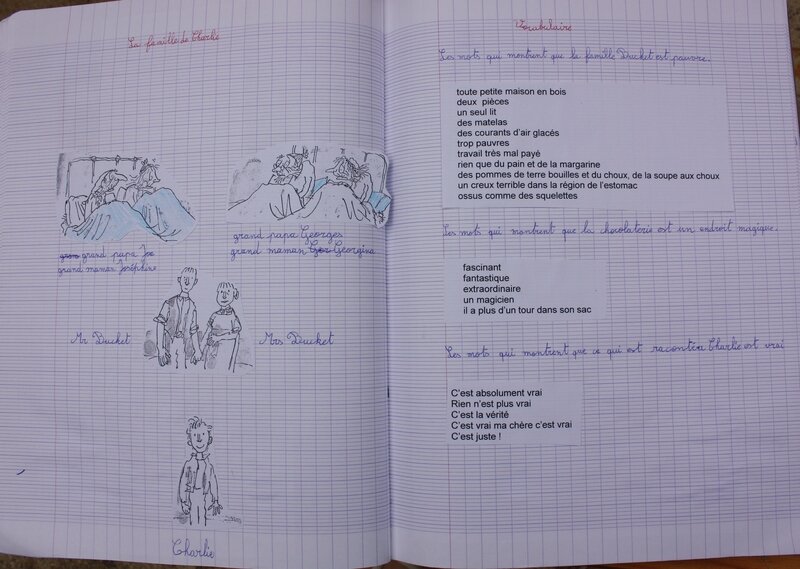 La famille de Charlie
grand papa Georges
grand maman Geor Georgina
gran grand papa Joe
grand maman Joséphine
Mr Bucket
Mrs Bucket
Charlie
Vocabulaire
Les mots qui montrent que la famille Bucket est pauvre.
toute petite maison en bois
deux pièces
un seul lit
des matelas
des courants d'air glacés
trop pauvres
travail très mal payé
rien que du pain et de la margarine
des pommes de terre bouilles et du choux, de la soupe aux choux
un creux terrible dans la région de l'estomac
ossus comme des squelettes
Les mots qui montrent que la chocolaterie est un endroit magique.
fascinant
fantastique
extraordinaire
un magicien
il a plus d'un tour dans son sac
Les mots qui montrent que ce qui est raconté à Charlie est vrai
C'est absolument vrai
Rien n'est plus vrai
C'est la vérité
C'est vrai ma chère c'est vrai
C'est juste !